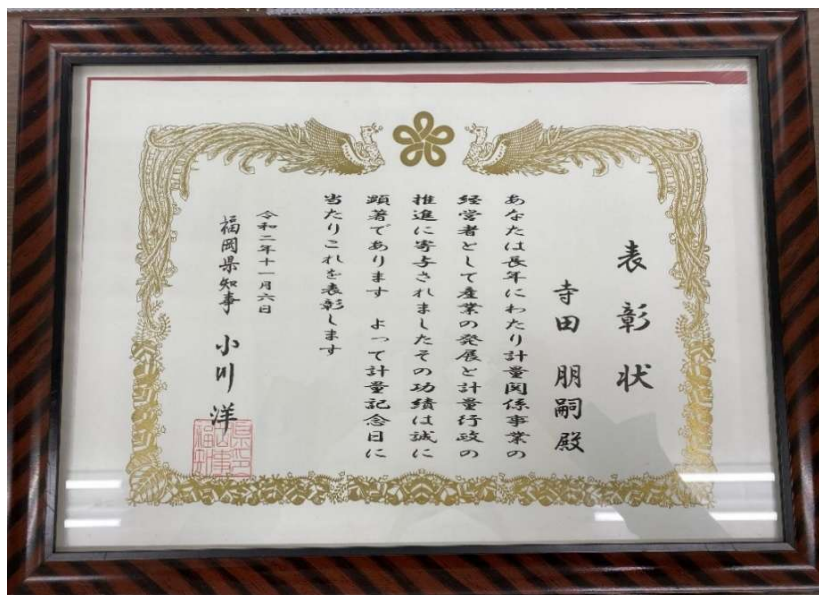 表彰状
寺田朋嗣殿
あなたは長年にわたり計量関係事業の
経営者として産業の発展と計量行政の
推進に寄与されましたその功績は誠に
顕著であります よって計量記念日に
当たりこれを表彰します
令和二年十一月六日
福岡県知事 小川洋